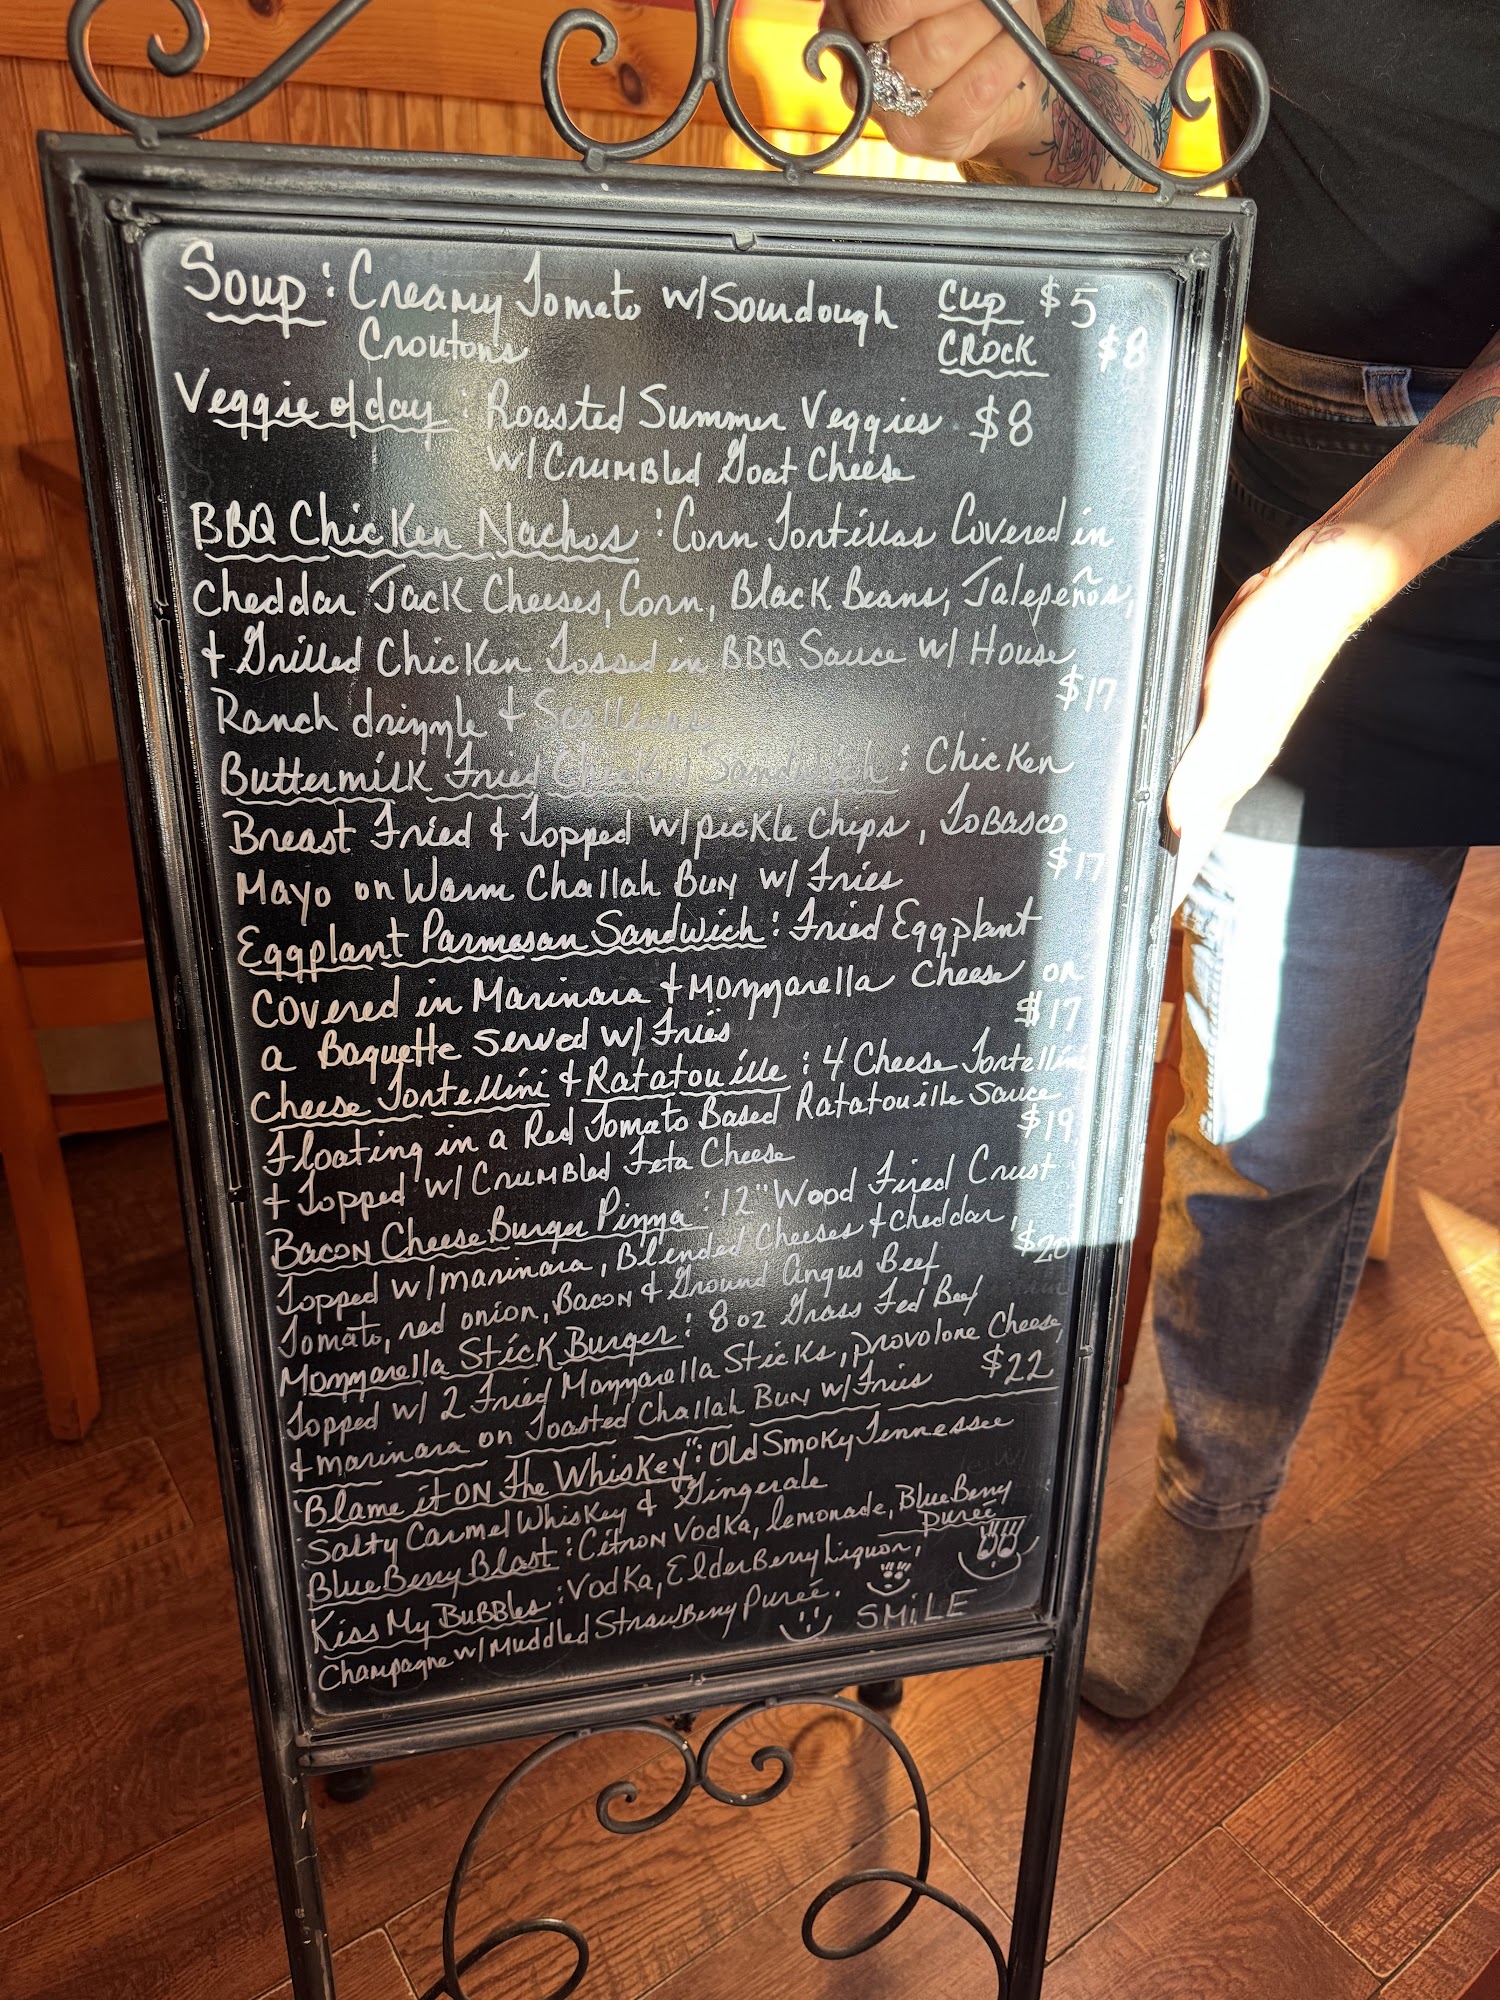 Soup: Creamy Tomato w/ Sourdough Cup $5
Croutons CROCK $8
Veggie of day: Roasted Summer Veggies $8
w/ Crumbled Goat Cheese
BBQ Chicken Nachos: Corn Tortillas Covered in
Cheddar Jack Cheeses, Corn, Black Beans, Jalepeños,
+ Grilled Chicken Tossed in BBQ Sauce w/ House
Ranch drizzle + Scallions $17
Buttermilk Fried Chicken Sandwich: Chicken
Breast Fried & Topped w/ pickle Chips, Tobasco
Mayo on Warm Challah Bun w/ Fries $17
Eggplant Parmesan Sandwich: Fried Eggplant
Covered in Marinara + Mozzarella Cheese on
a Baguette served w/ Fries $17
Cheese Tortellini & Ratatouille: 4 Cheese Tortellini
Floating in a Red Tomato Based Ratatouille Sauce
+ Topped w/ Crumbled Feta Cheese $19
Bacon Cheese Burger Pizza: 12" Wood Fired Crust
Topped w/ marinara, Blended Cheeses + cheddar,
Tomato, red onion, Bacon & Ground Angus Beef $20
Mozzarella Stick Burger: 8 oz Grass Fed Beef
Topped w/ 2 Fried Mozzarella Sticks, provolone Cheese,
+ marinara on Toasted Challah Bun w/ Fries $22
"Blame it on the Whiskey": Old Smoky Tennessee
Salty Carmel Whiskey & Gingerale
BlueBerry Blast: Citron Vodka, lemonade, BlueBerry
Pureé
Kiss My Bubbles: Vodka, ElderBerry Liquor,
Champagne w/ Muddled StrawBerry Pureé. SMiLE